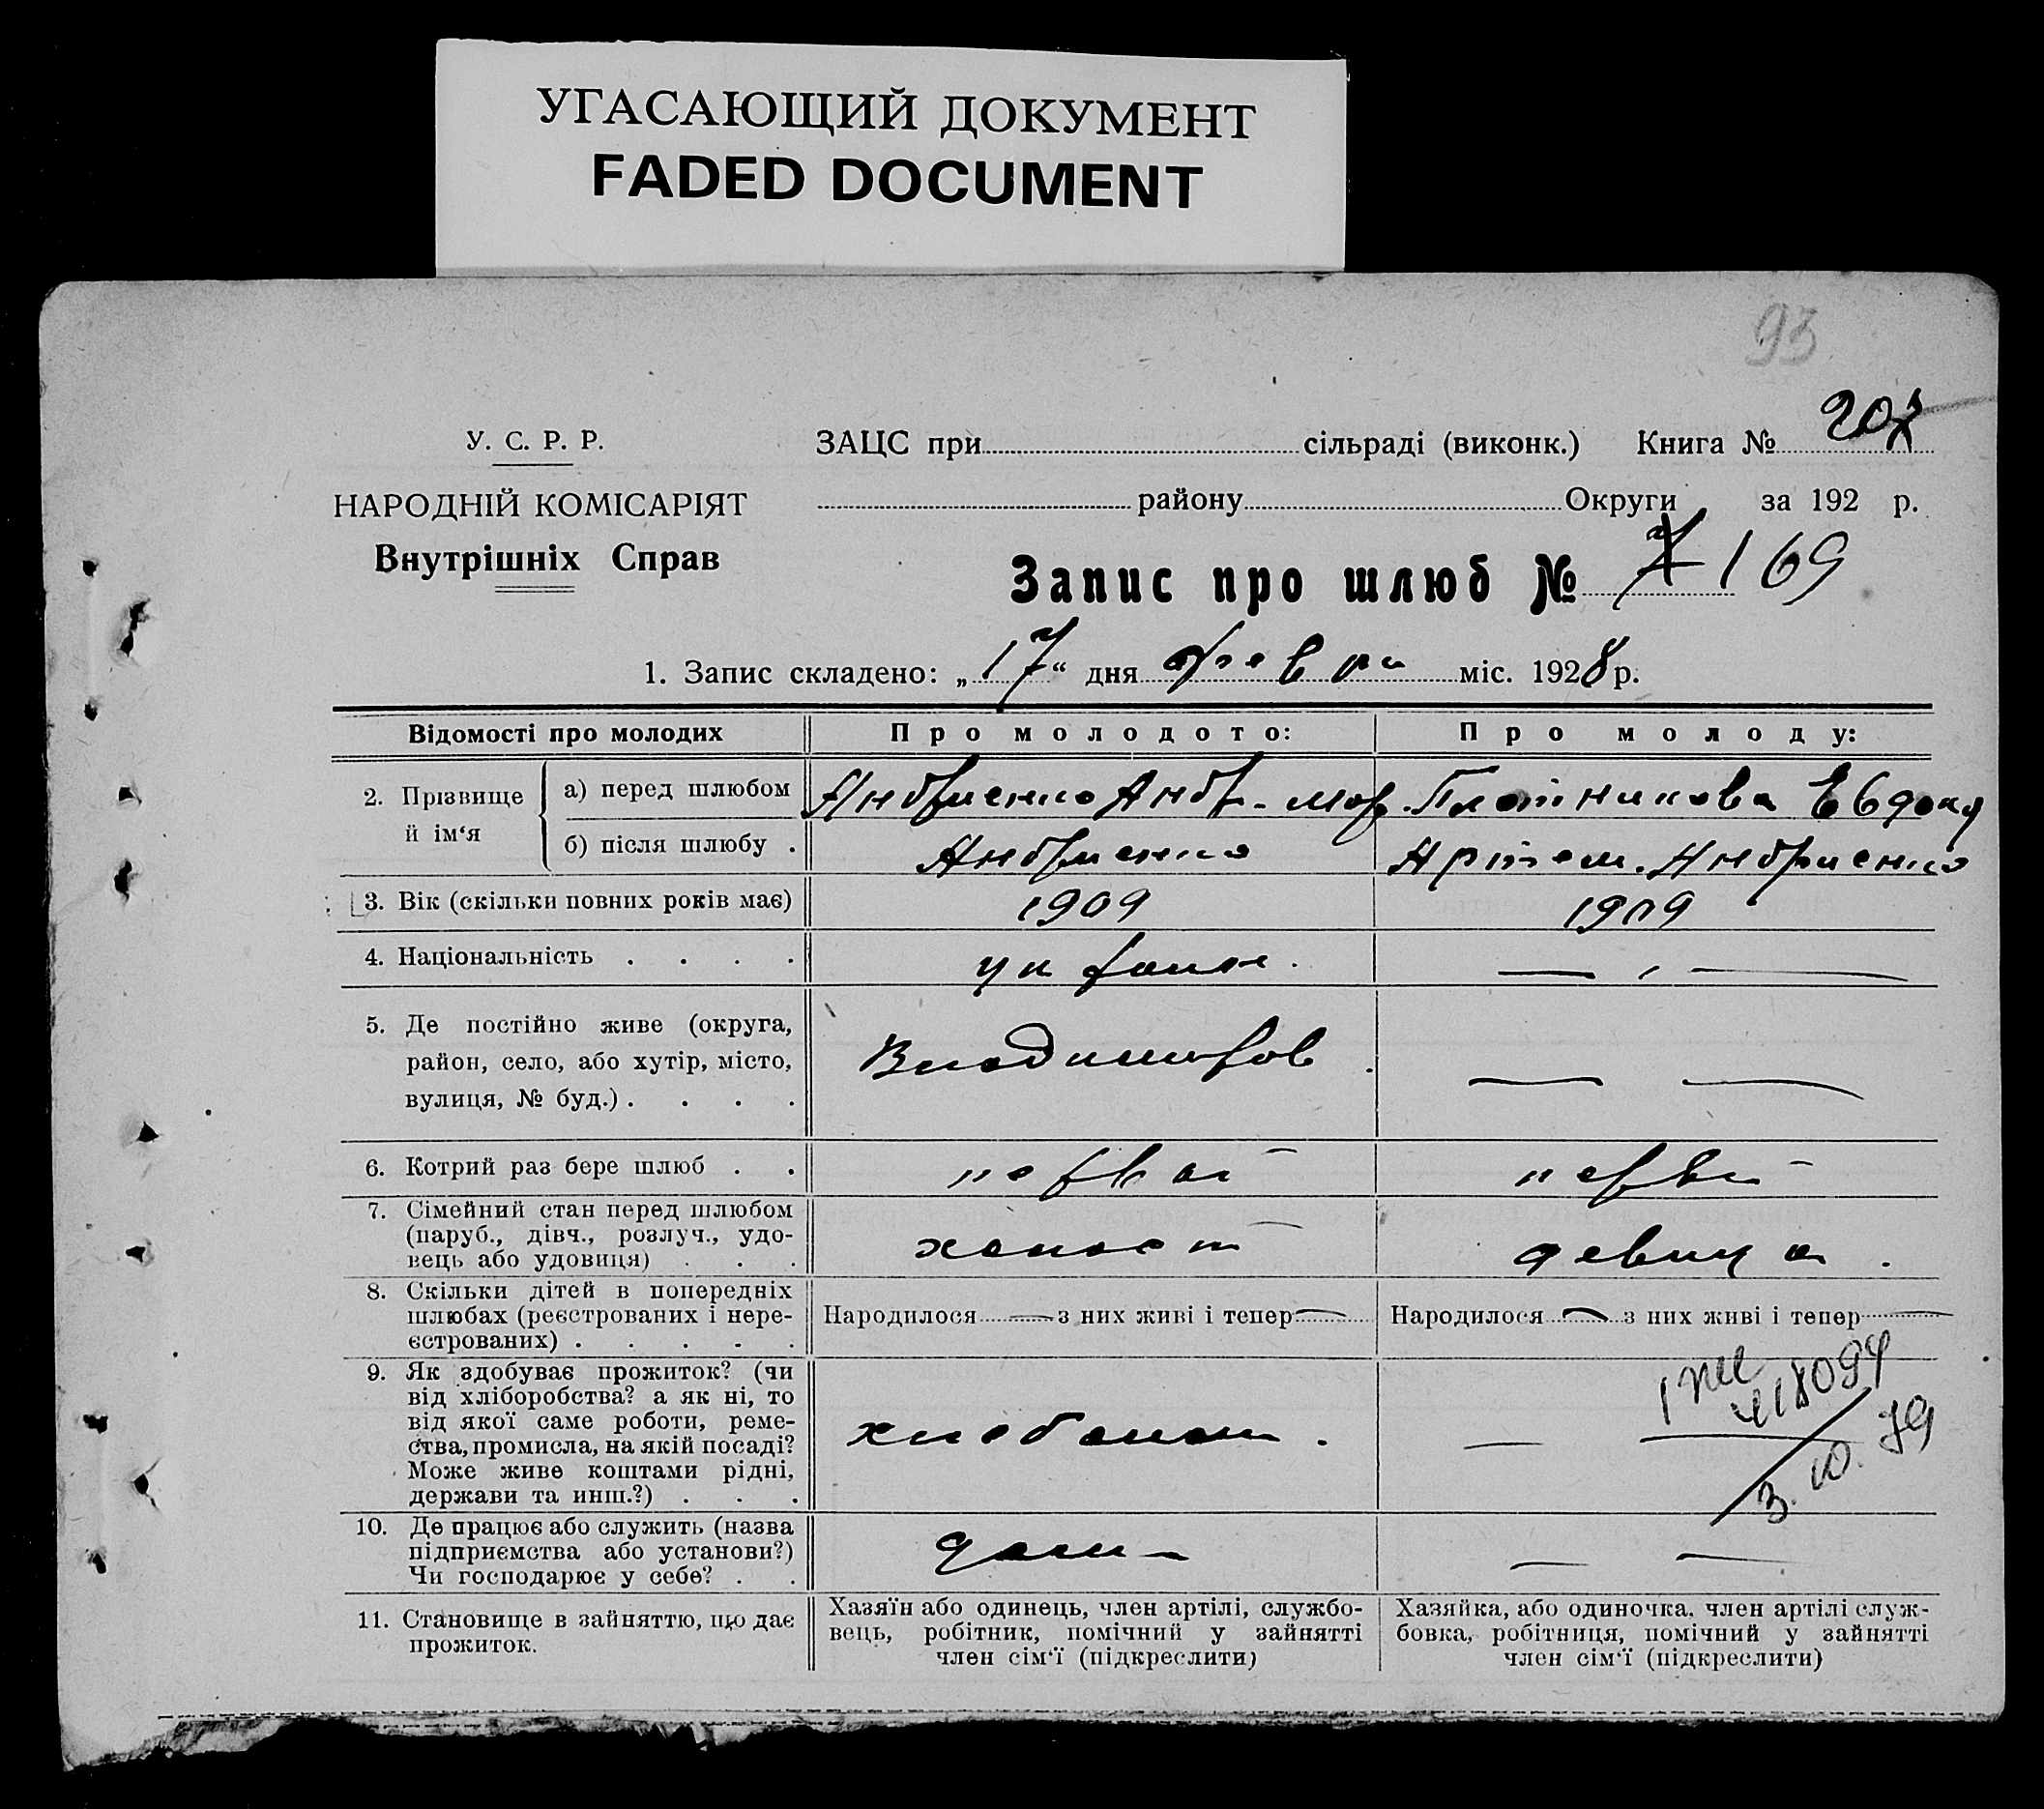 УГАСАЮЩИЙ ДОКУМЕНТ
FADED DOCUMENT
93
У. С. Р. Р.
НАРОДНІЙ КОМІСАРІЯТ
Внутрішніх Справ
ЗАЦС при сільраді (виконк.) Книга № 207
району Округи за 192 р.
Запис про шлюб № 7 169
1. Запис складено: „17“ дня февр міс. 1928 р.
Відомості про молодих
Про молодого:
Про молоду:
2. Прізвище й ім‘я
а) перед шлюбом
Андриенко Андр. Мор.
Плотникова Евдокия
б) після шлюбу .
Андриенко
Артем. Андриенко
3. Вік (скільки повних років має)
1909
1909
4. Національність . . . .
украин.
— „ —
5. Де постійно живе (округа,
район, село, або хутір, місто,
вулиця, № буд.) . . . .
Владимиров
— —
6. Котрий раз бере шлюб . .
первый
первый
7. Сімейний стан перед шлюбом
(паруб., дівч., розлуч., удо-
вець або удовиця) . . .
холост
девица.
8. Скільки дітей в попередніх
шлюбах (реєстрованих і нере-
єстрованих) . . . . .
Народилося — з них живі і тепер —
Народилося — з них живі і тепер —
9. Як здобуває прожиток? (чи
від хліборобства? а як ні, то
від якої саме роботи, реме-
ства, промисла, на якій посаді?
Може живе коштами рідні,
держави та инш.?) . . .
хлебопаш.
—
418094
3. 10. 79
10. Де працює або служить (назва
підприємства або установи?)
Чи господарює у себе? . .
дома
— —
11. Становище в зайняттю, що дає
прожиток.
Хазяїн або одинець, член артілі, службо-
вець, робітник, помічний у зайнятті
член сім‘ї (підкреслити)
Хазяйка, або одиночка, член артілі служ-
бовка, робітниця, помічний у зайнятті
член сім‘ї (підкреслити)